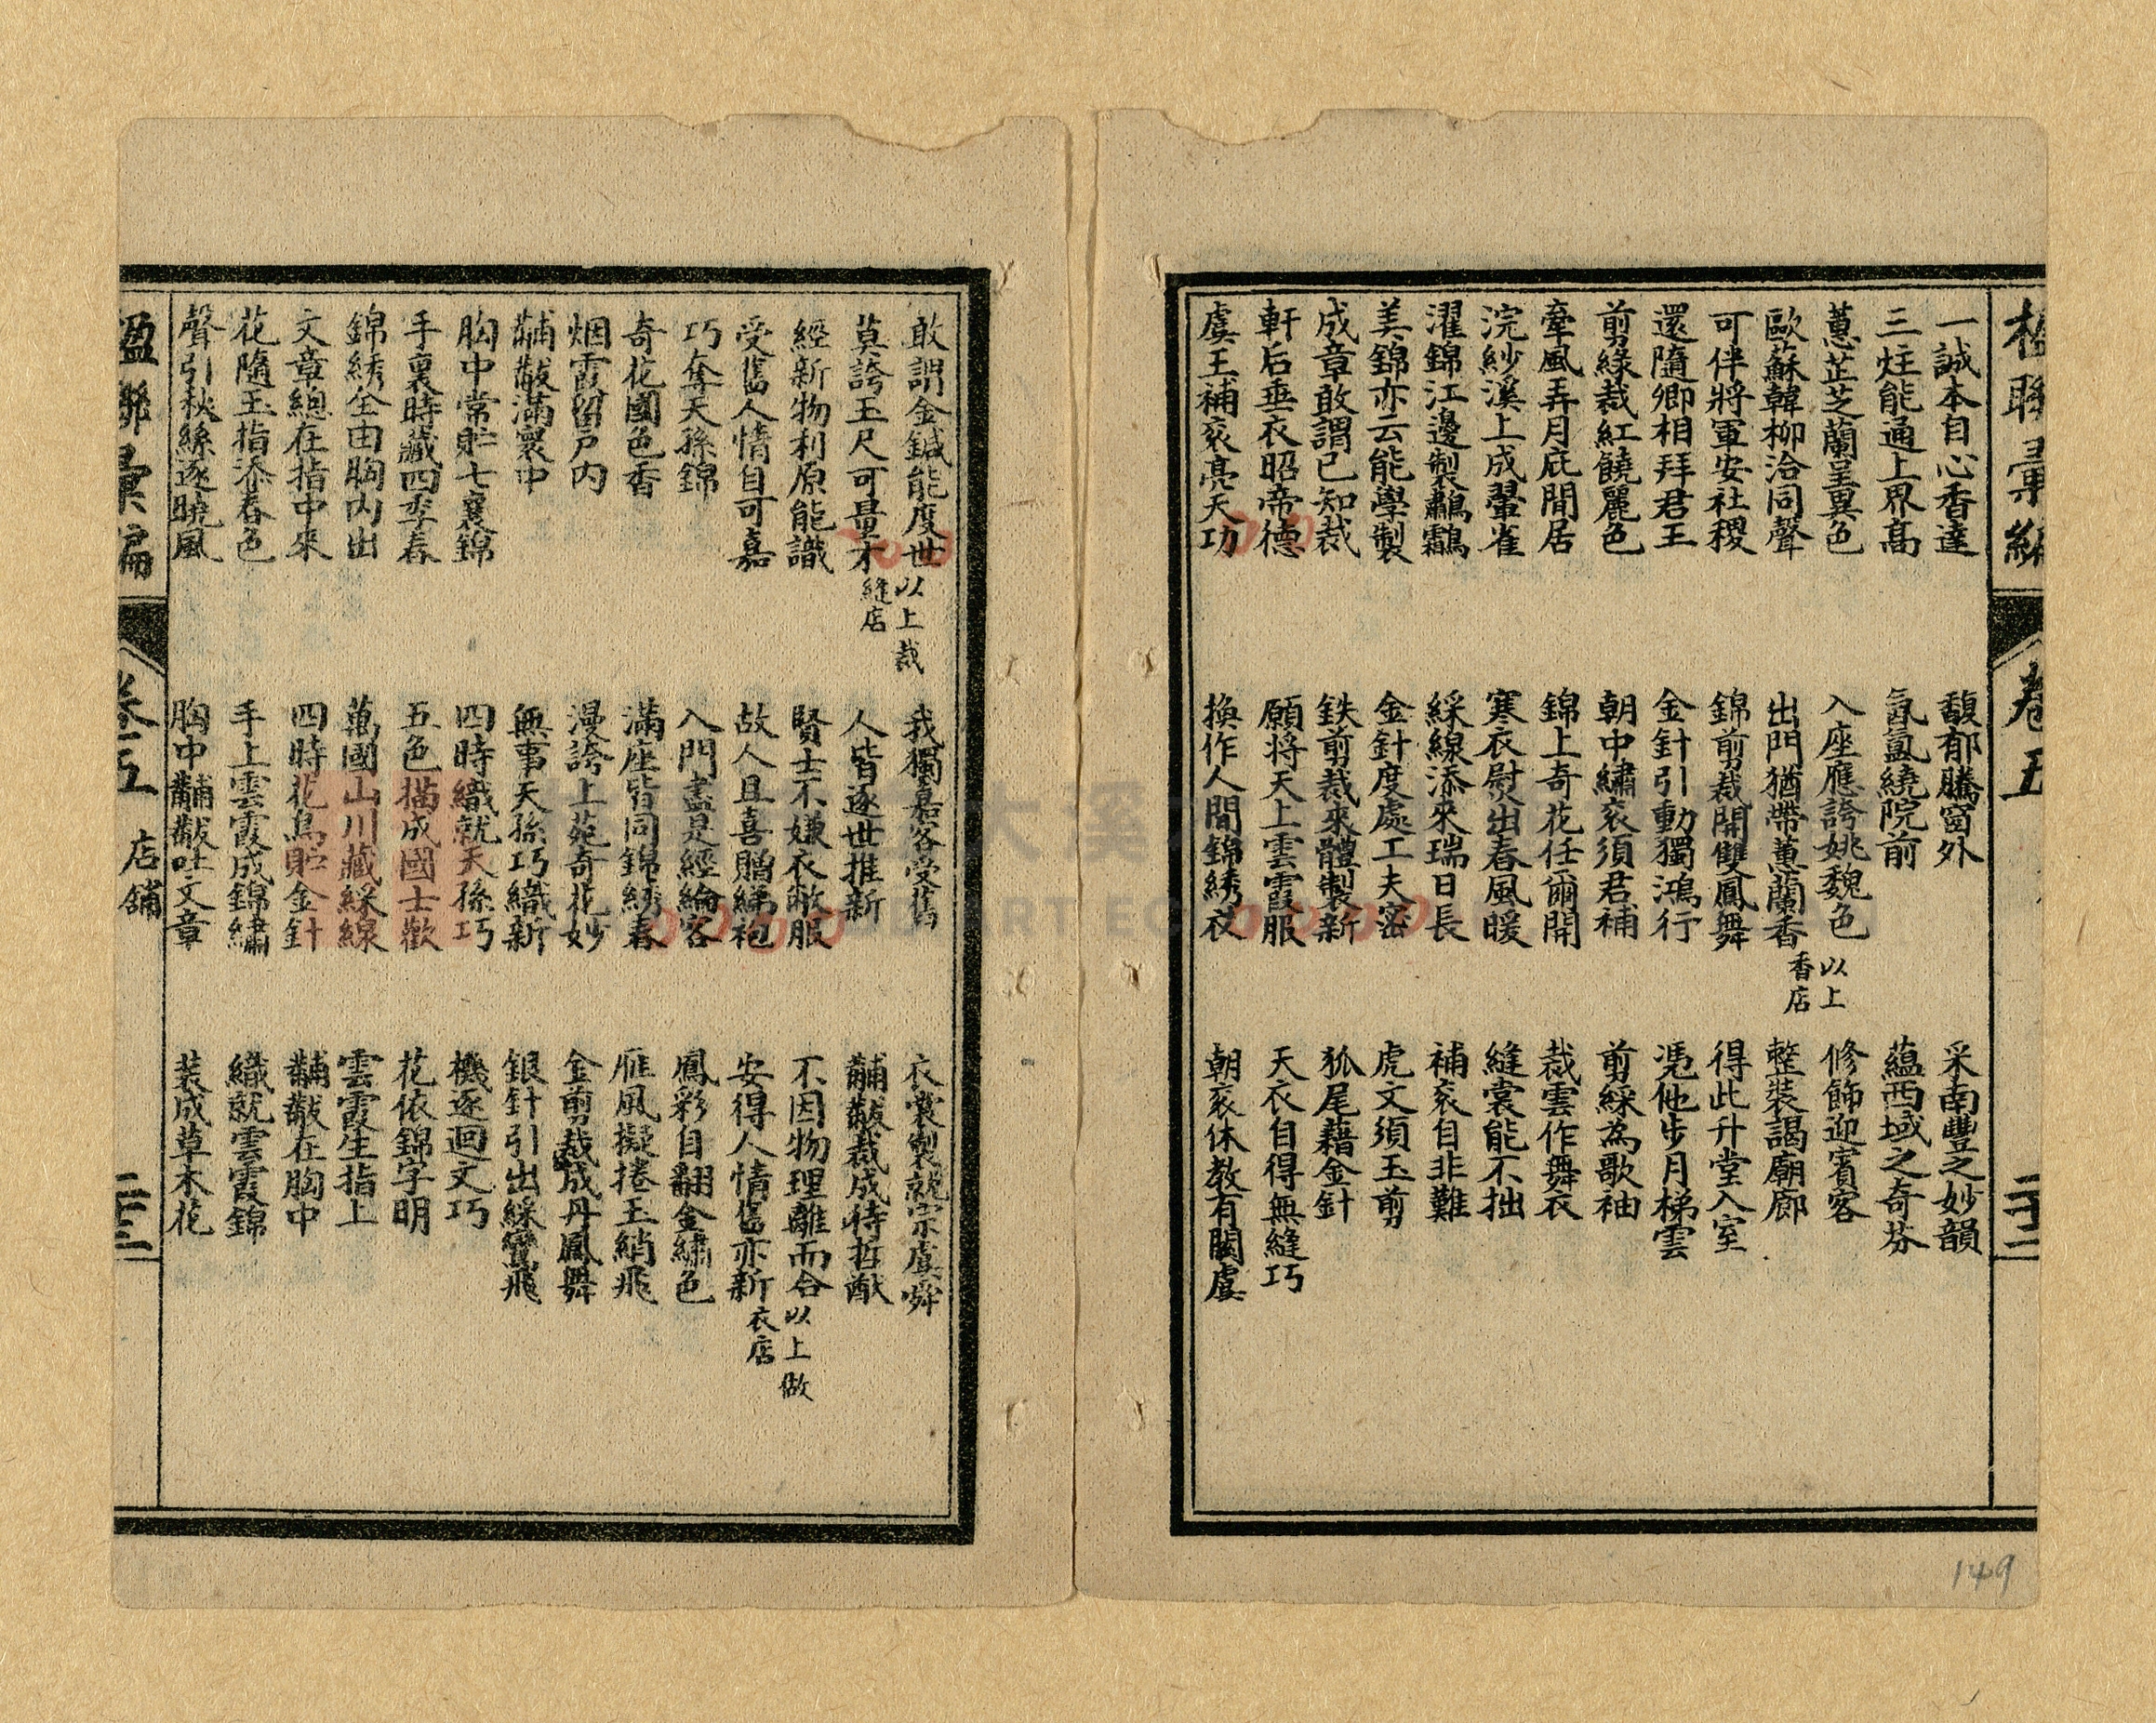 楹聯彙編 卷五 二十二
一誠本自心香達 馥郁騰窗外 采南豐之妙韻
三炷能通上界高 氤氳繞院前 蘊西域之奇芬
蕙芷芝蘭呈異色 入座應誇姚魏色 修飾迎賓客
歐蘇韓柳洽同聲 出門猶帶蕙蘭香 以上香店 整裝謁廟廊
可伴將軍安社稷 錦剪裁開雙鳳舞 得此升堂入室
還隨卿相拜君王 金針引動獨鴻行 憑他步月梯雲
剪綠裁紅饒麗色 朝中繡袞須君補 剪綵為歌袖
牽風弄月庇閒居 錦上奇花任爾開 裁雲作舞衣
浣紗溪上成翬雀 寒衣熨出春風暖 縫裳能不拙
濯錦江邊製鷫鸘 綵線添來瑞日長 補袞自非難
美錦亦云能學製 金針度處工夫密 虎文須玉剪
成章敢謂已知裁 鉄剪裁來體製新 狐尾藉金針
軒后垂衣昭帝德 願將天上雲霞服 天衣自得無縫巧
虞王補袞亮天功 換作人間錦綉衣 朝袞休教有闕虞
敢謂金鍼能度世 我獨嘉客受舊 衣裳製就宗虞舜
莫誇玉尺可量才 以上裁縫店 人皆逐世推新 黼黻裁成待哲猷
經新物利原能識 賢士不嫌衣敝服 不因物理離而合
受舊人情自可嘉 故人且喜贈綈袍 安得人情舊亦新 以上做衣店
巧奪天孫錦 入門盡是經綸客 鳳彩自翻金繡色
奇花國色香 滿座皆同錦綉春 雁風擬捲玉綃飛
烟霞留戶內 漫誇上苑奇花妙 金剪裁成丹鳳舞
黼黻滿寰中 無事天孫巧織新 銀針引出綵鸞飛
胸中常貯七襄錦 四時織就天孫巧 機逐迴文巧
手裏時藏四季春 五色描成國士歡 花依錦字明
錦綉全由胸內出 萬國山川藏綵線 雲霞生指上
文章總在指中來 四時花鳥貯金針 黼黻在胸中
花隨玉指添春色 手上雲霞成錦繡 織就雲霞錦
聲引秋絲逐曉風 胸中黼黻吐文章 裝成草木花
楹聯彙編 卷五 店舖 二十三
149